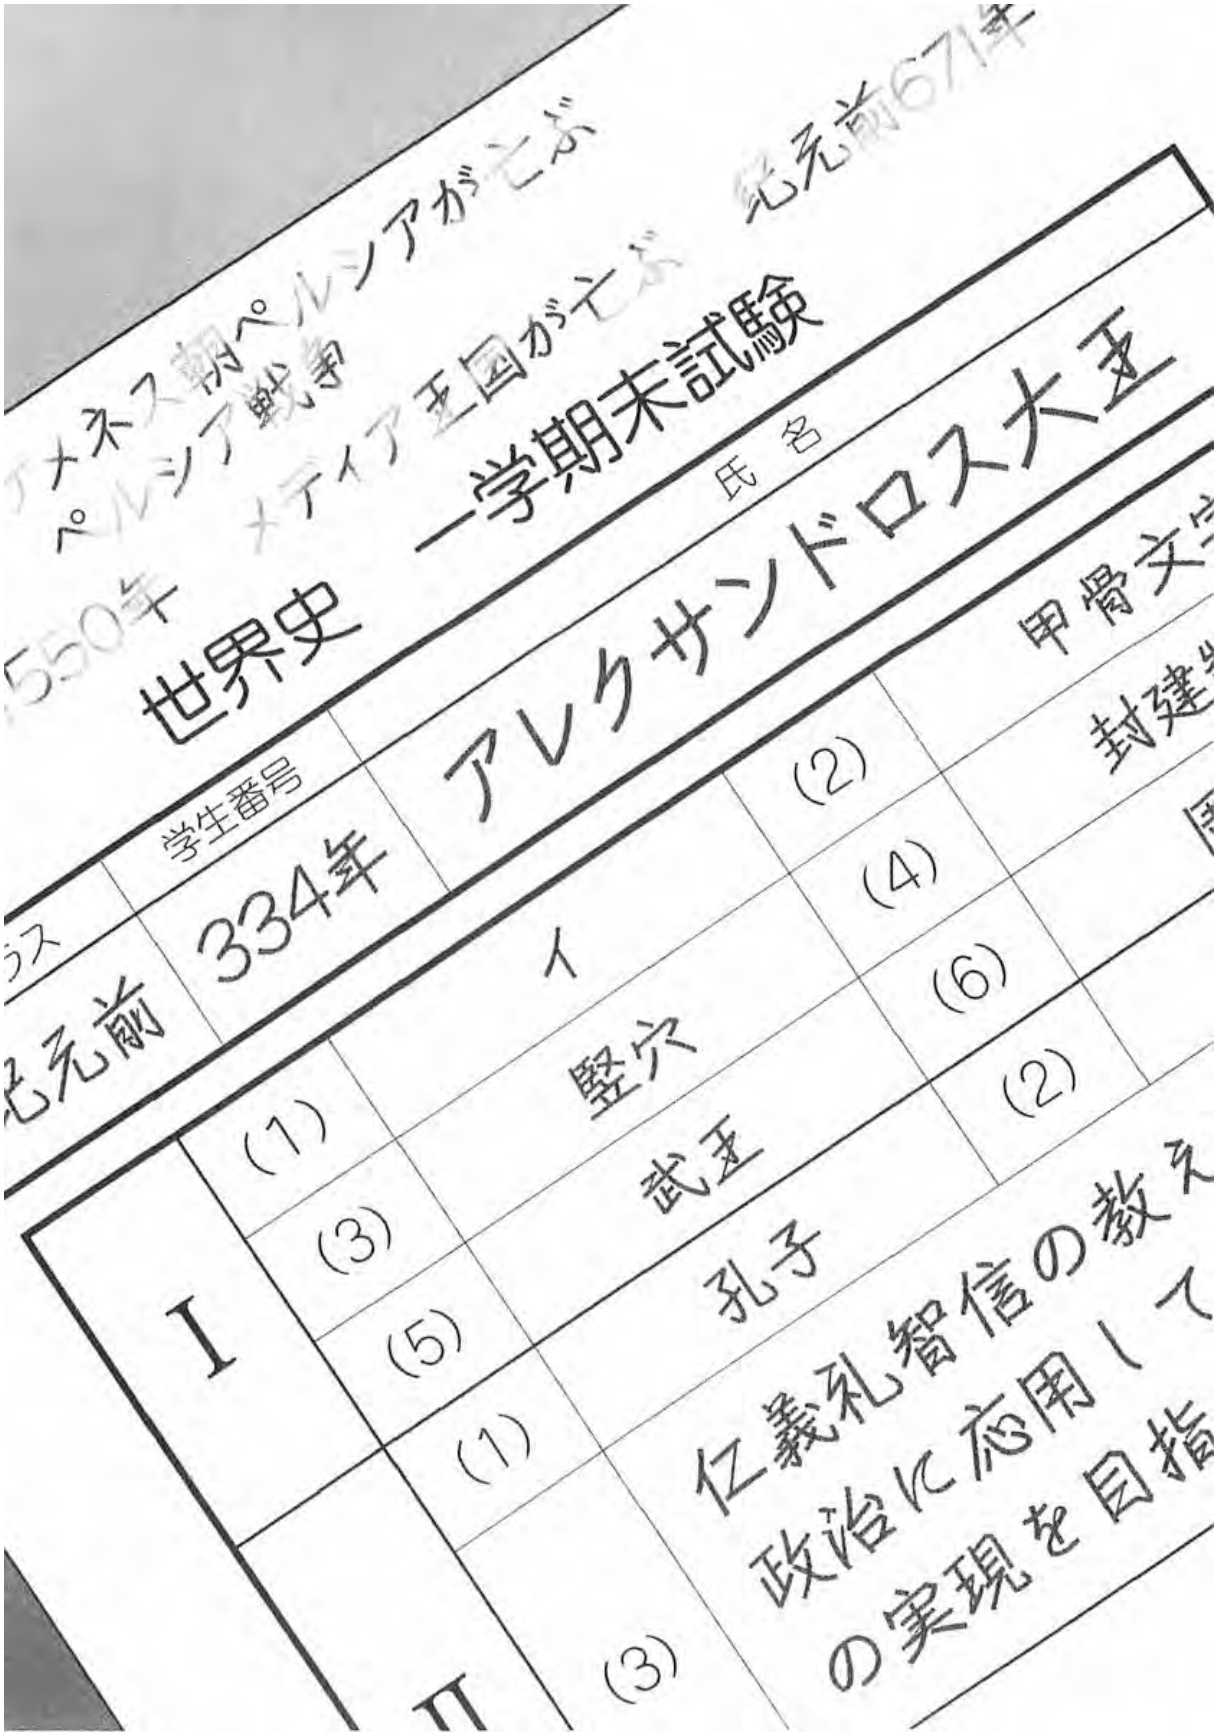 アケメネス朝ペルシアが亡ぶ
ペルシア戦争
550年 メディア王国が亡ぶ 紀元前671年
世界史 一学期末試験
学生番号 氏名
紀元前 334年 アレクサンドロス大王
I
(1) イ (2) 甲骨文字
(3) 竪穴 (4) 封建
(5) 武王 (6)
II
(1) 孔子 (2)
(3) 仁義礼智信の教え
政治に応用して
の実現を目指